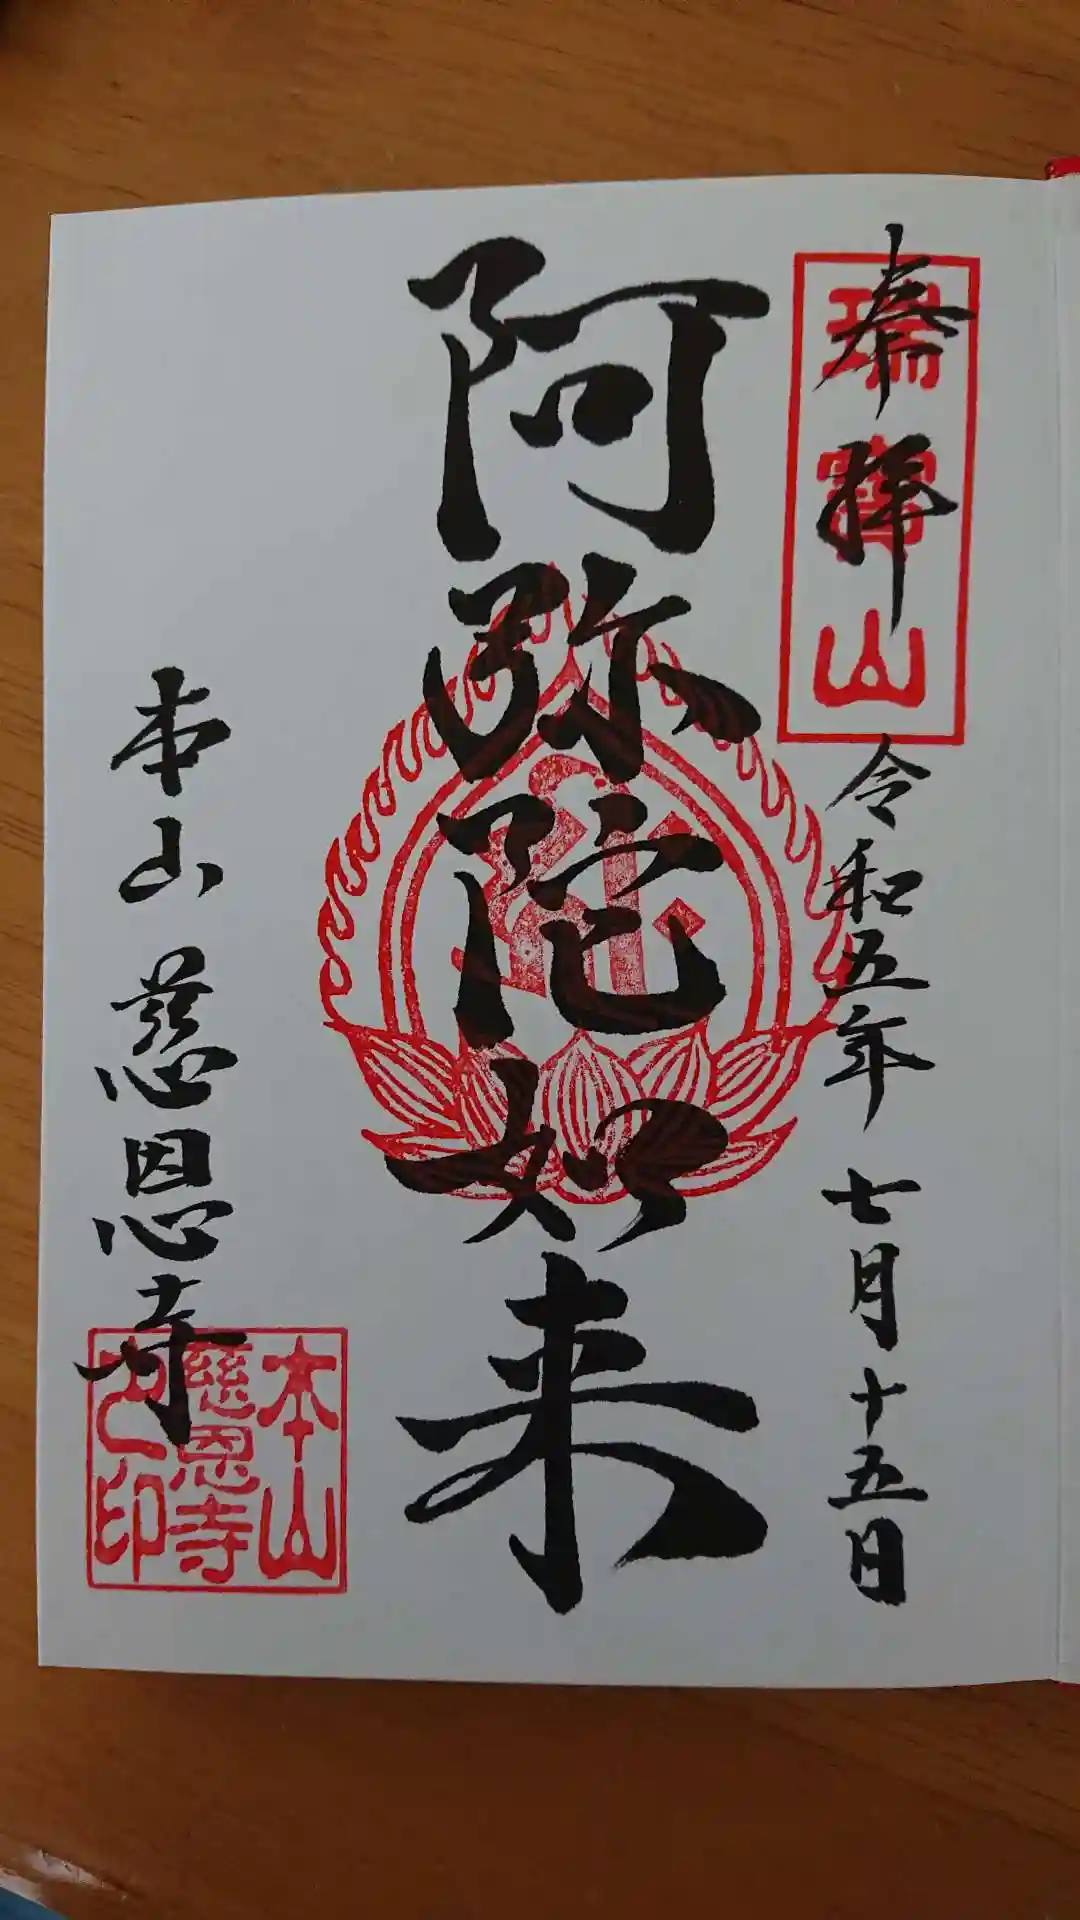 奉拝
瑞寶山
令和五年 七月十五日
阿弥陀如来
本山 慈恩寺
本山
慈恩寺
之印